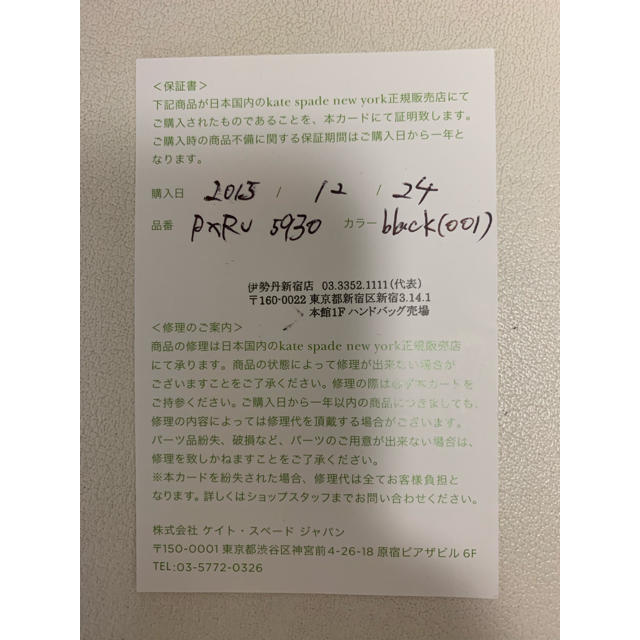 <保証書>
下記商品が日本国内のkate spade new york正規販売店にて
ご購入されたものであることを、本カードにて証明致します。
ご購入時の商品不備に関する保証期間はご購入日から一年と
なります。
購入日 2015 / 12 / 24
品番 PXRU 5930 カラー black(001)
伊勢丹新宿店 03.3352.1111(代表)
〒160-0022 東京都新宿区新宿3.14.1
本館1F ハンドバッグ売場
<修理のご案内>
商品の修理は日本国内のkate spade new york正規販売店
にて承ります。商品の状態によって修理が出来ない場合が
ございますことをご了承ください。修理の際は必ず本カードを
ご持参ください。ご購入日から一年以内の商品につきましても、
修理の内容によっては修理代を頂戴する場合がございます。
パーツ品紛失、破損など、パーツのご用意が出来ない場合は、
修理を致しかねますことをご了承ください。
※本カードを紛失された場合、修理代は全てお客様負担と
なります。詳しくはショップスタッフまでお問い合わせください。
株式会社 ケイト・スペード ジャパン
〒150-0001 東京都渋谷区神宮前4-26-18 原宿ピアザビル 6F
TEL:03-5772-0326